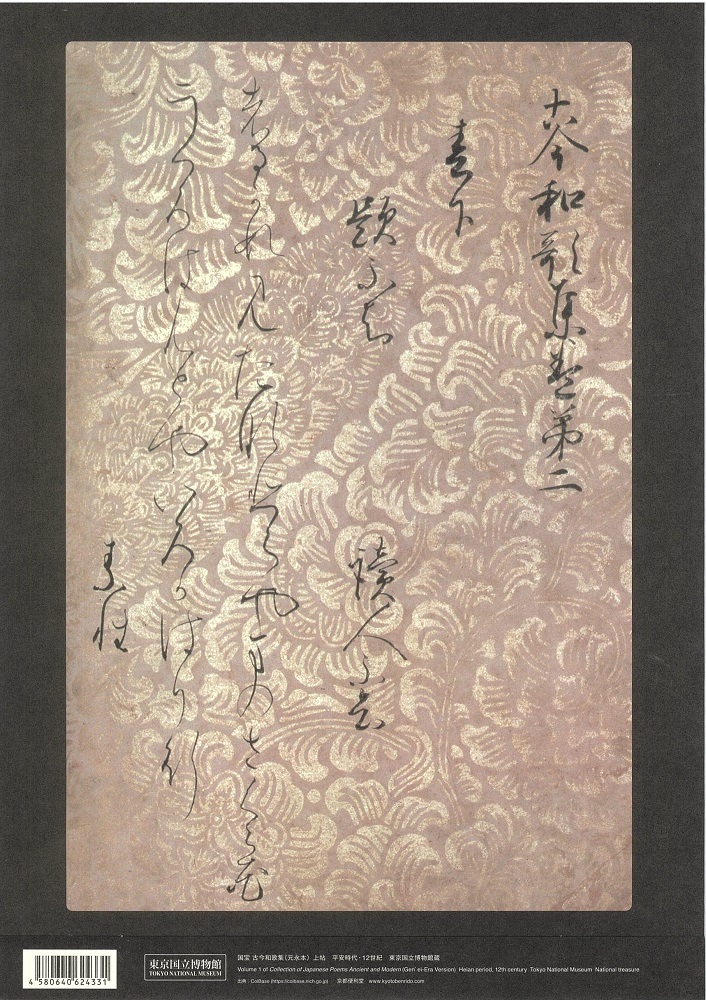 古今和歌集巻第二
春下
題不知　讀人不知
はるかすみたなひくやまのさくら花
うつろはんとやいろかはり行
素性
4 580640 624331
東京国立博物館
TOKYO NATIONAL MUSEUM
国宝 古今和歌集(元永本) 上帖　平安時代・12世紀　東京国立博物館蔵
Volume 1 of Collection of Japanese Poems Ancient and Modern (Gen'ei-Era Version) Heian period, 12th century Tokyo National Museum National treasure
出典：ColBase (https://colbase.nich.go.jp)　京都便利堂　www.kyotobenrido.com